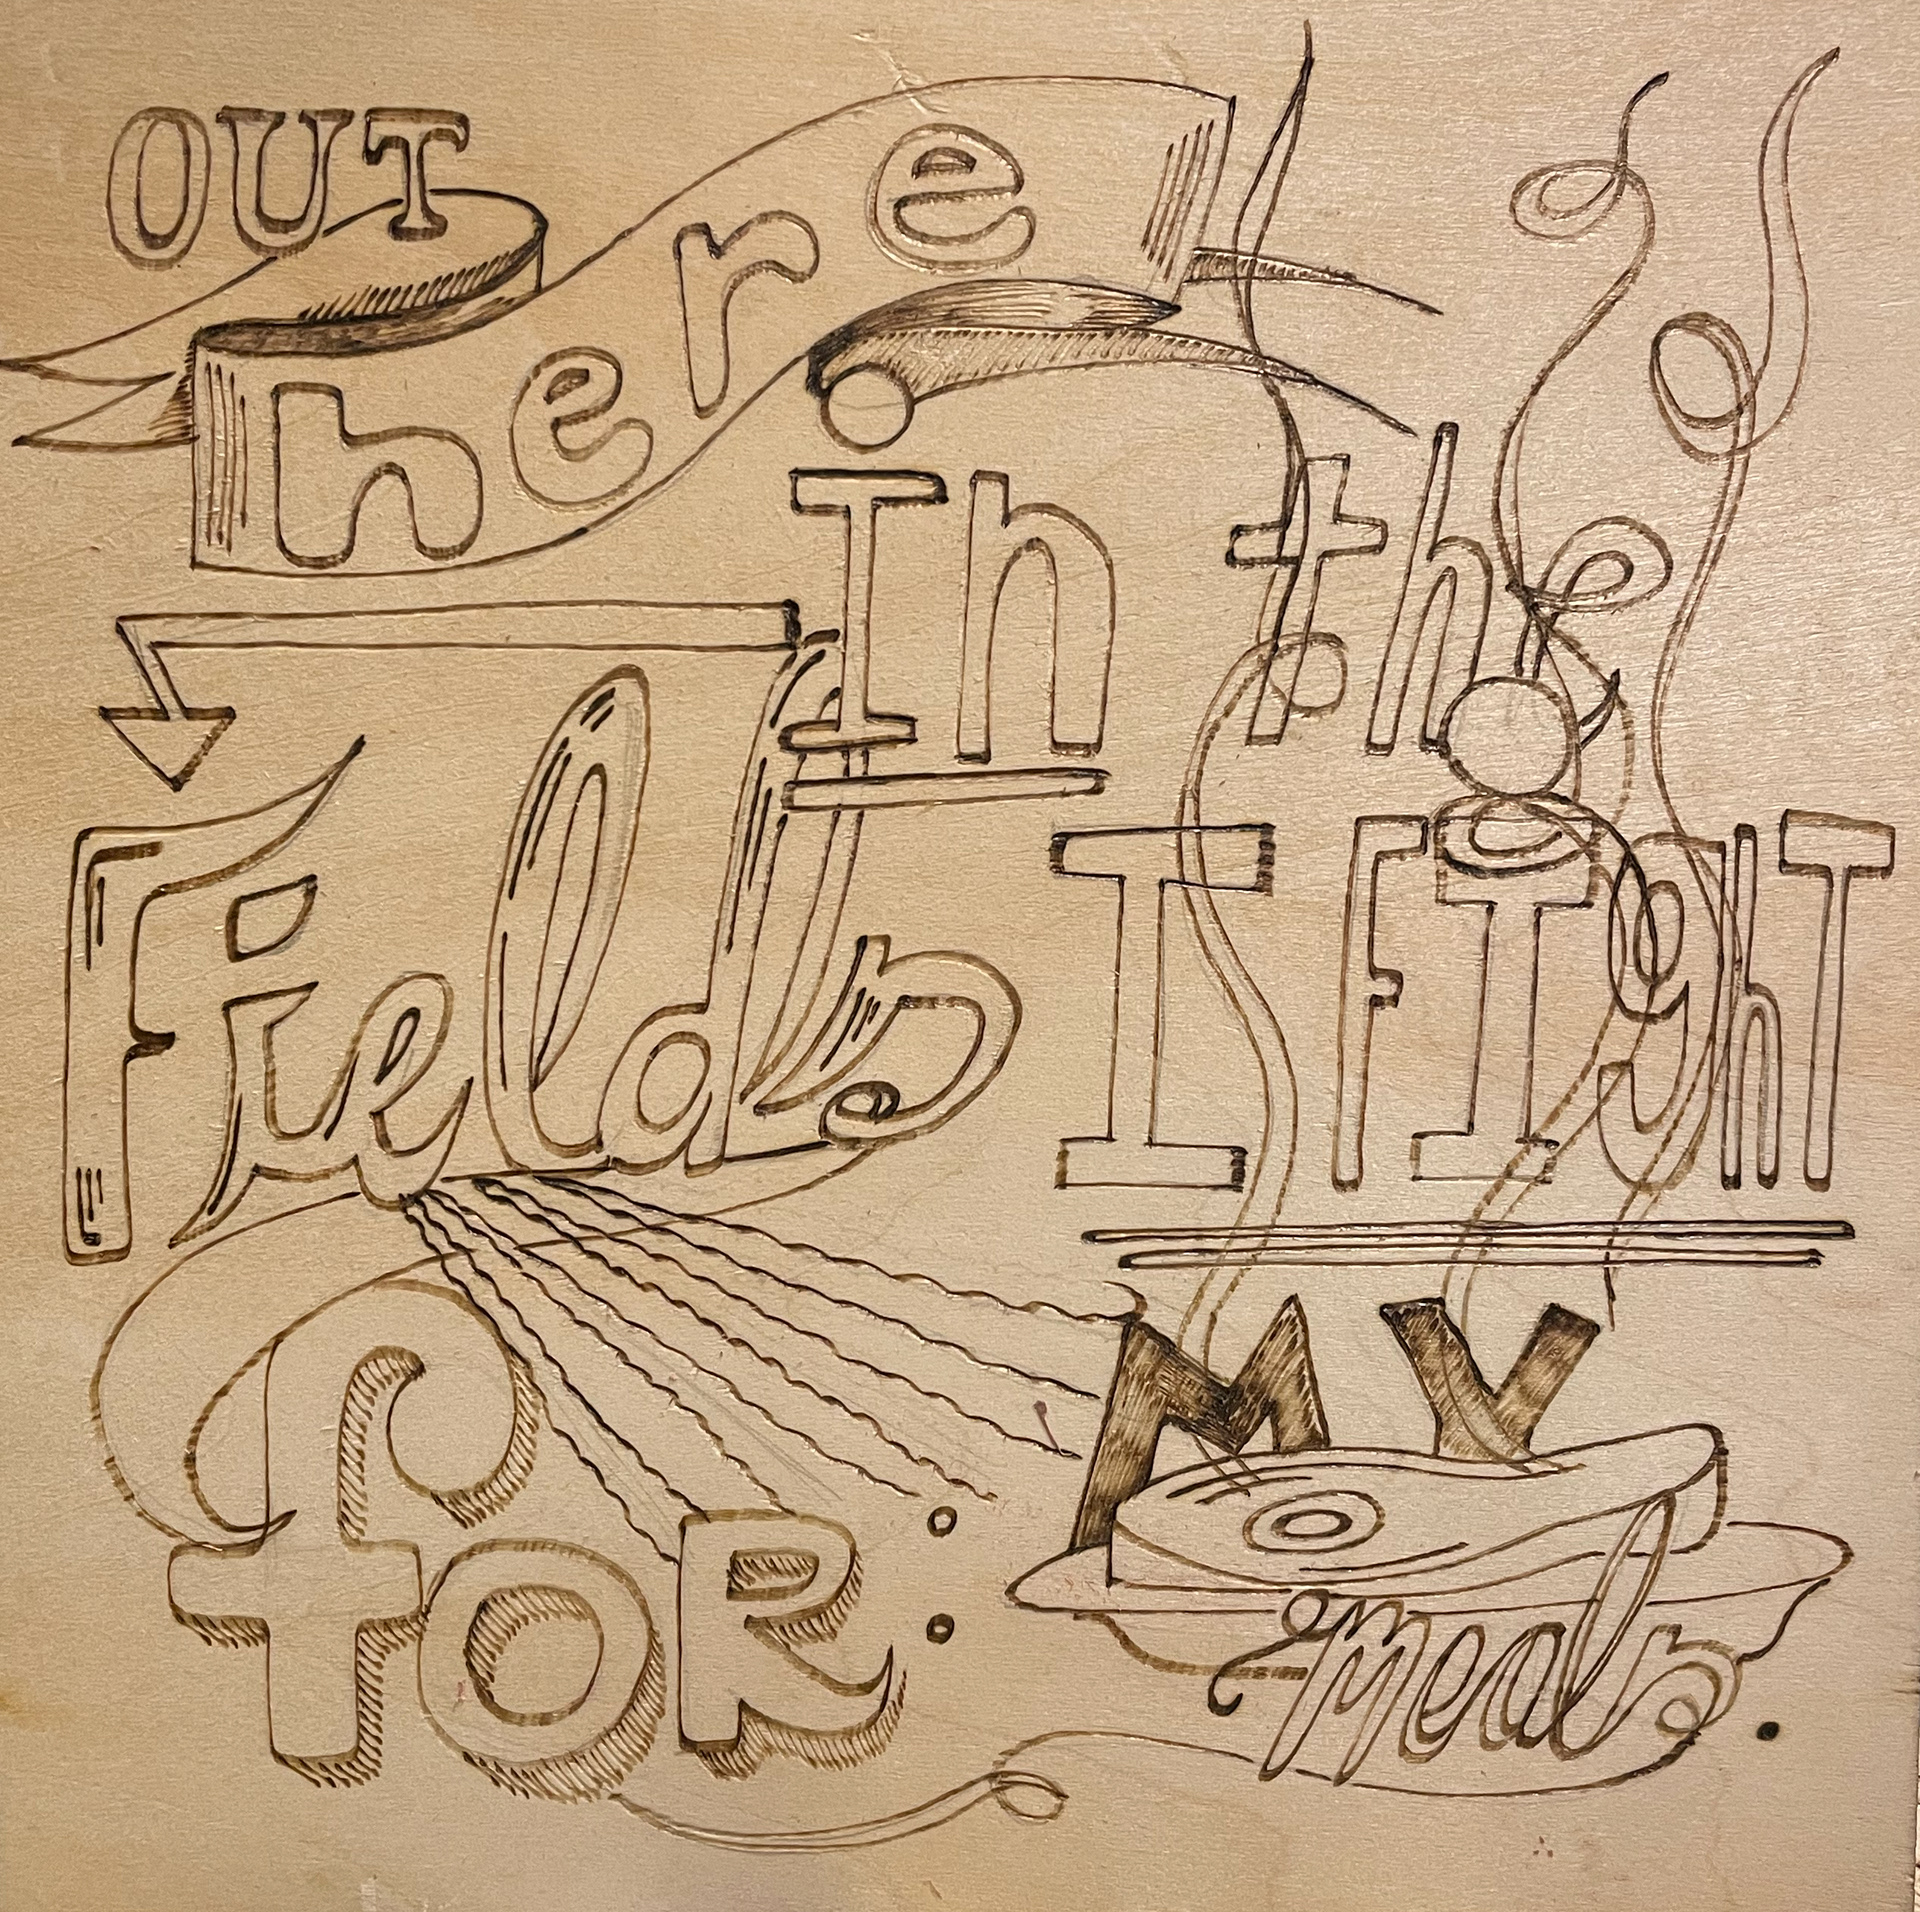 OUT
here
In the
Fields
I FIghT
foR:
MY
meals.